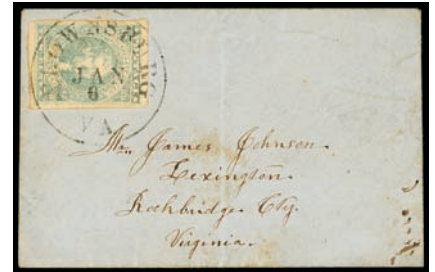 BROWNSBURG
JAN
6
VA
Mr. James Johnson.
Lexington.
Rockbridge Cty.
Virginia.